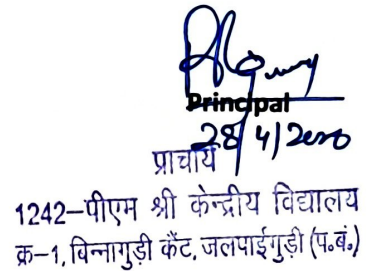 Principal
28/4/2020
प्राचार्य
1242–पीएम श्री केन्द्रीय विद्यालय
क्र–1, बिन्नागुड़ी कैंट, जलपाईगुड़ी (प०बं०)